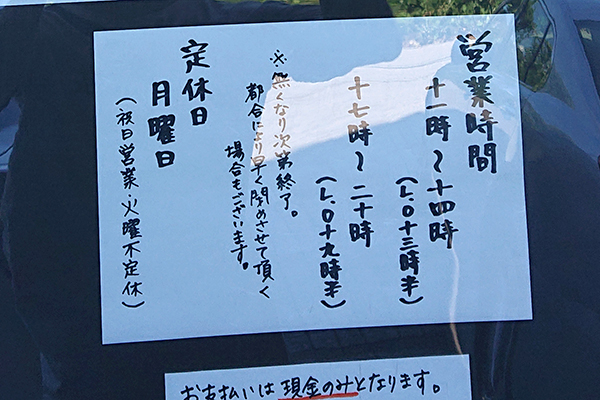 営業時間
十一時〜十四時
（L.O十三時半）
十七時〜二十時
（L.O十九時半）
※無くなり次第終了。
都合により早く閉めさせて頂く
場合もございます。
定休日
月曜日
（祝日営業・火曜不定休）
お支払いは現金のみとなります。